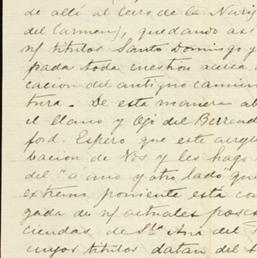 de allí al Cerro de la Nariz
del Carmen), quedando así
n/ títulos Santo Domingo y
pada toda cuestion acerca
cacion del antiguo camino
tura. — De esta manera ab
el llano y Ojo del Berrendo
ford. Espero que este
bacion de Vos y les hago
del "a uno y otro lado" que
extremo poniente esta con
gada de n/ actuales posec
ciendas de Sta Ana del
cuyos títulos datan del